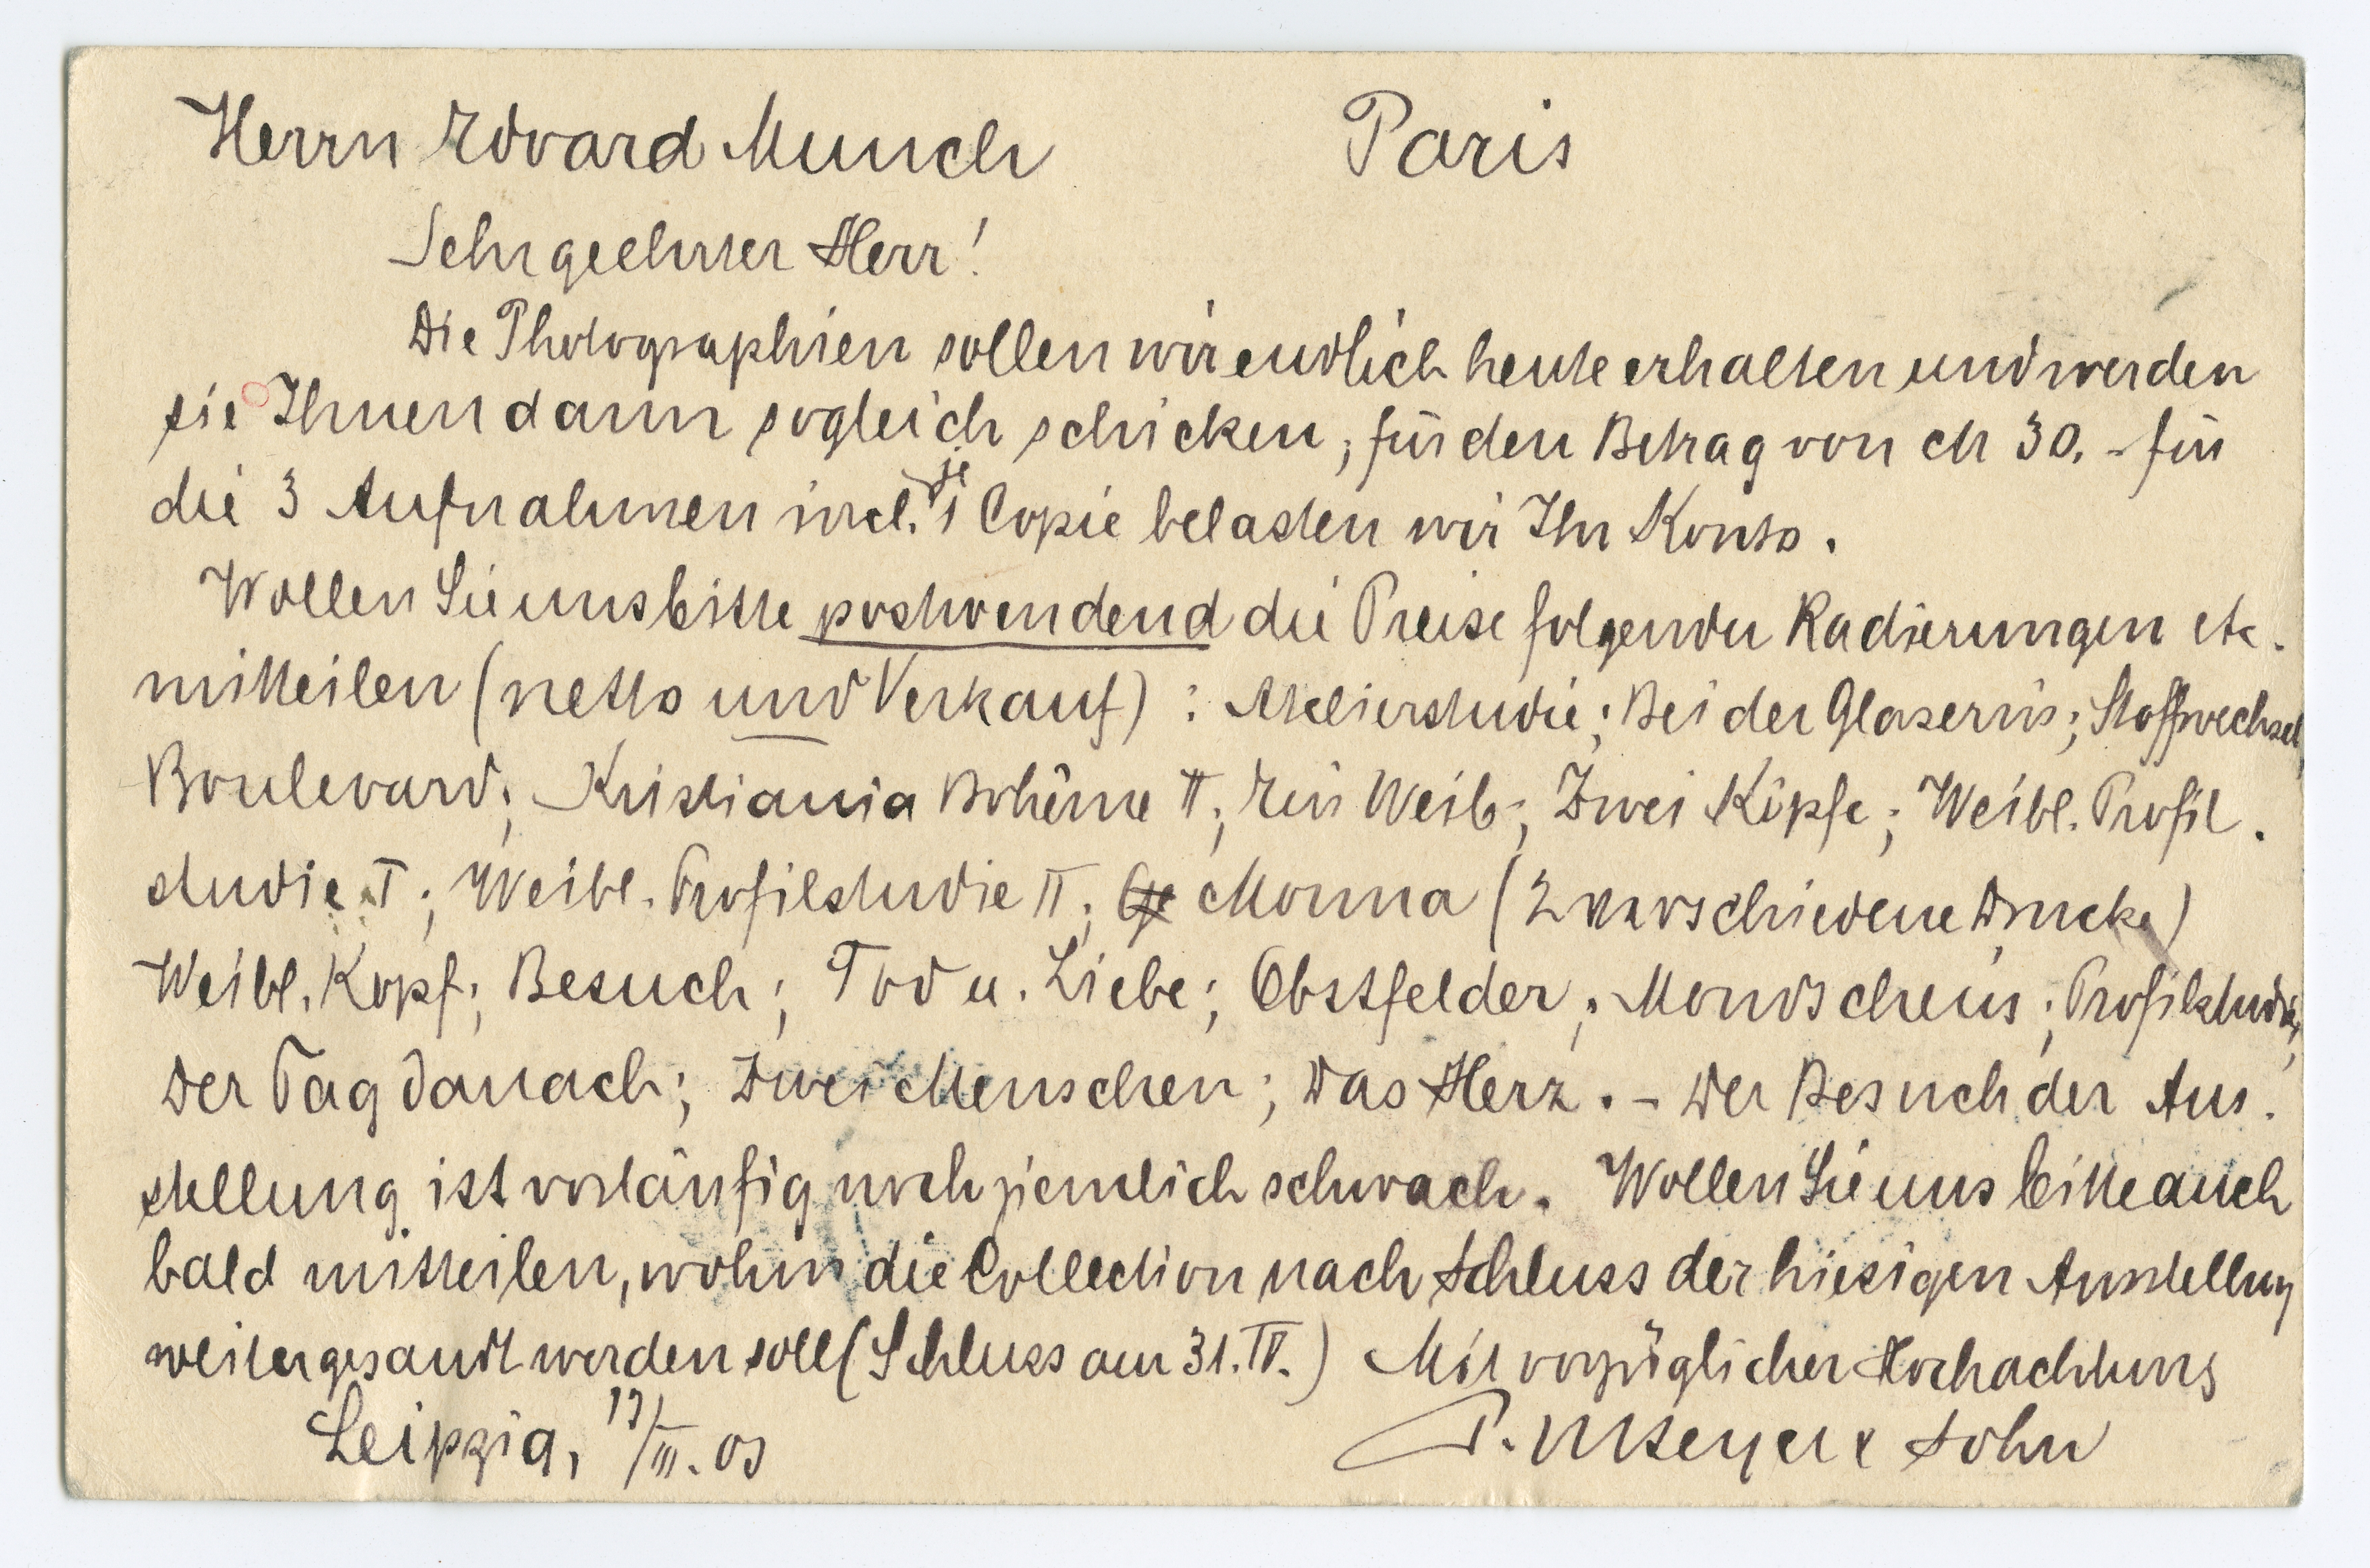 Herrn Edvard Munch Paris
Sehr geehrter Herr!
Die Photographien sollen wir endlich heute erhalten und werden
sie Ihnen dann sogleich schicken; für den Betrag von M 30.- für
die 3 Aufnahmen incl. je 1 Copie belasten wir Ihr Konto.
Wollen Sie uns bitte postwendend die Preise folgender Radierungen etc.
mitteilen (netto und Verkauf): Atelierstudie; Bei der Glaserin; Stoffwechsel,
Boulevard; Kristiania Bohême II; Ein Weib; Zwei Köpfe; Weibl. Profil-
studie I; Weibl. Profilstudie II; Monna (2 verschiedene Drucke)
Weibl. Kopf; Besuch; Tod u. Liebe; Obstfelder; Mondschein; Profilstudie;
Der Tag danach; Zwei Menschen; Das Herz. - Der Besuch der Aus-
stellung ist vorläufig noch ziemlich schwach. Wollen Sie uns bitte auch
bald mitteilen, wohin die Collection nach Schluss der hiesigen Ausstellung
weitergesandt werden soll (Schluss am 31. IV.) Mit vorzüglicher Hochachtung
Leipzig, /III. 03 P. H. Beyer & Sohn